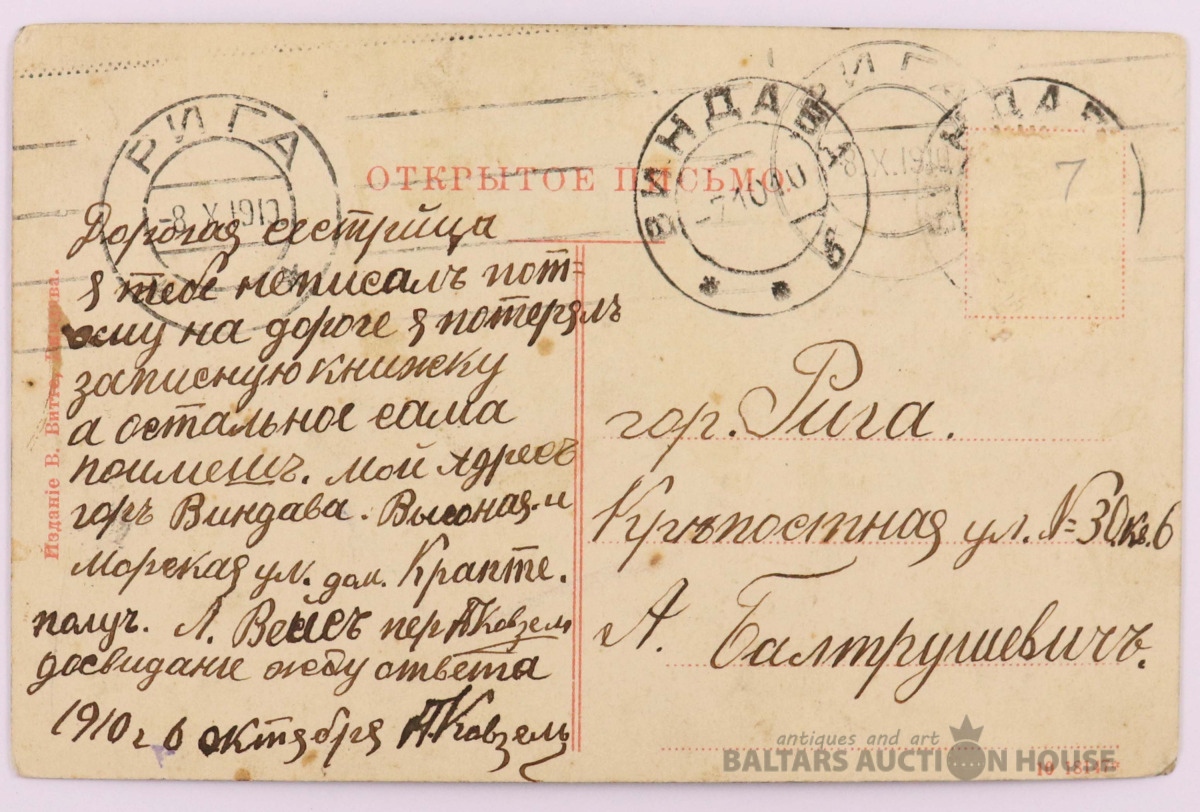 РИГА
-8.X.1910
ВИНДАВА
-7.10.10
РИГА
8.X.1910
7
ОТКРЫТОЕ ПИСЬМО
Дорогая сестрица
я тебе неписалъ пот=
ому на дороге я потерялъ
записную книжку
а остальное сама
поимешъ. мой Адресъ
горъ Виндава.
Морская ул. дом. Крапте.
получ. Л. Вейсъ пер А Ковзель
досвидание жду ответа
1910 г 6 октября А. Ковзель
гор. Рига.
Крѣпостная ул. №=30.кв.6
А. Балтрушевичъ.
Изданіе В. Витте,
antiques and art
BALTARS AUCTION HOUSE